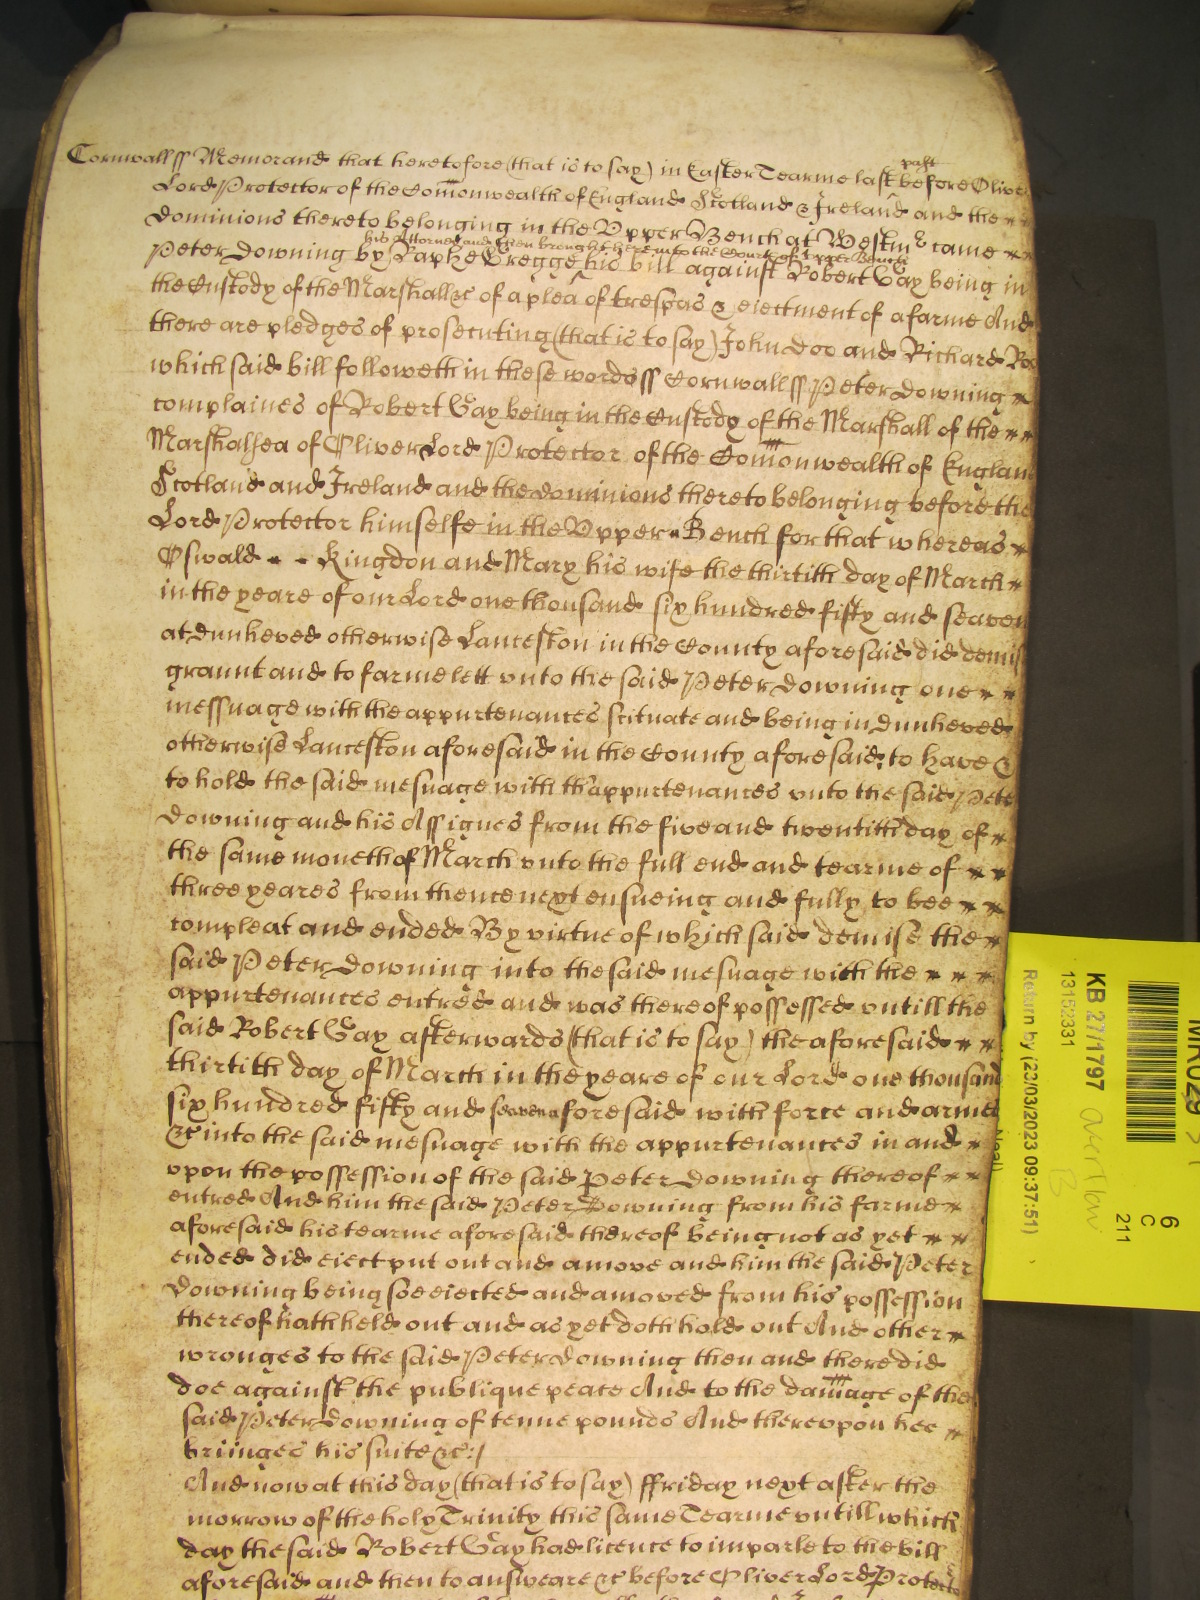 Cornwall ss Memorand that heretofore (that is to say) in Easter Tearme last past before Oliver
Lord Protector of the Com̄onwealth of England Scotland & Ireland and the
Dominions thereto belonging in the Upper Bench at Westm̃ came
his Attorney and then brought here into the Court of Upper Bench
Peter Downing by Raphe Gregge his bill against Robert Gay being in
the Custody of the Marshall &c of a plea of trespas & eiectment of a farme And
there are pledges of prosecuting (that is to say) John Doo and Richard Roo
which said bill followeth in these words ss Cornwall ss Peter Downing
complaines of Robert Gay being in the Custody of the Marshall of the
Marshalsea of Oliver Lord Protector of the Com̄onwealth of England
Scotland and Ireland and the dominions thereto belonging before the
Lord Protector himselfe in the Upper Bench for that whereas
Oswald - - Kingdon and Mary his wife the thirtith day of March
in the yeare of our Lord one thousand six hundred fifty and seaven
at Dunheved otherwise Lanceston in the County aforesaid did demise
graunt and to farme lett vnto the said Peter Downing one
messuage with the appurtenances scituate and being in Dunheved
otherwise Lanceston aforesaid in the County aforesaid to have &
to hold the said mesuage with thappurtenances vnto the said Peter
Downing and his Assignes from the five and twentith day of
the same moneth of March vnto the full end and tearme of
three yeares from thence next ensueing and fully to bee
compleat and ended By virtue of which said demise the
said Peter Downing into the said mesuage with the
appurtenances entred and was thereof possessed vntill the
said Robert Gay afterwards (that is to say) the aforesaid
thirtith day of March in the yeare of our Lord one thousand
six hundred fifty and seaven aforesaid with force and armes
&c into the said mesuage with the appurtenances in and
vpon the possession of the said Peter Downing thereof
entred And him the said Peter Downing from his farme
aforesaid his tearme aforesaid thereof being not as yet
ended did eiect put out and amove and him the said Peter
Downing being soe eiected and amoved from his possession
thereof hath held out and as yet doth hold out And other
wronges to the said Peter Downing then and there did
doe against the publique peace And to the dam̄age of the
said Peter Downing of tenne pounds And therevpon hee
bringes his suite &c:/
And now at this day (that is to say) ffriday next after the
morrow of the holy Trinity this same Tearme vntill which
day the said Robert Gay had licence to imparle to the bill
aforesaid and then to answeare &c before Oliver Lord Protector
KB 27/1797
13152331
Return by (23/03/2023 09:37:51)
6
C
211
overflow
B